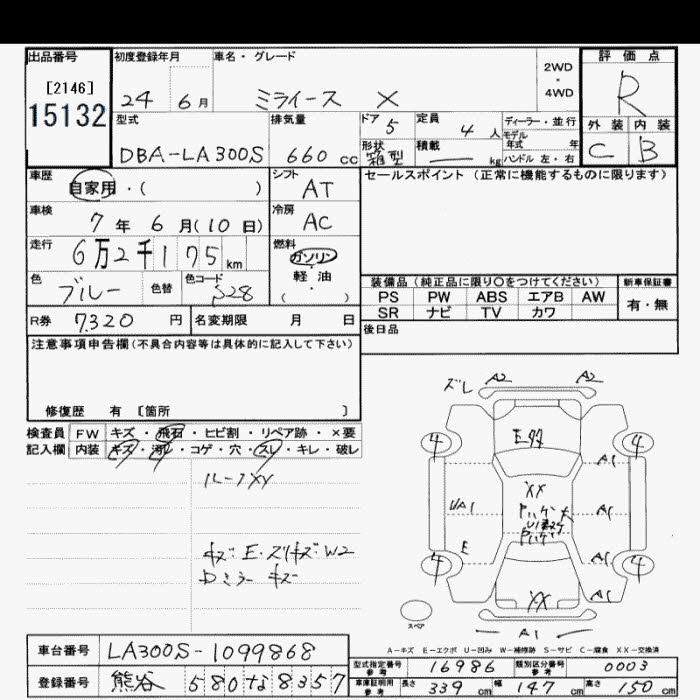 出品番号
[2146]
15132
初度登録年月
24 6月
車名・グレード
ミライース X
2WD
・
4WD
評価点
R
外装 内装
C B
型式
DBA-LA300S
排気量
660 cc
ドア 5
形状 箱型
定員 4 人
積載 — kg
ディーラー・並行
モデル年式 年
ハンドル 左・右
車歴
自家用・( )
シフト
AT
車検
7年 6月(10日)
冷房
AC
走行
6万2千175 km
燃料
ガソリン
軽・油
( )
色
ブルー
色替
色コード
R券 7,320 円
名変期限 月 日
セールスポイント(正常に機能するものに限ります)
装備品(純正品に限り○をつけてください)
PS PW ABS エアB AW
SR ナビ TV カワ
新車保証書
有・無
後日品
注意事項申告欄(不具合内容等は具体的に記入して下さい)
修復歴 有 〔箇所 〕
検査員記入欄
FW キズ・飛石・ヒビ割・リペア跡・×要
内装 キズ・汚レ・コゲ・穴・スレ・キレ・破レ
ルーフXX
キズ・E・スリキズ・W2
Dミラー キズ
ズレ A2 A2
4 4
A1
XX
U/A1
A1
E
A1
4 4
A1
XX
A1
スペア
A-キズ E-エクボ U-凹み W-補修跡 S-サビ C-腐食 XX-交換済
車台番号 LA300S-1099868
登録番号 熊谷 580な8357
型式指定番号 参考 16986
類別区分番号 参考 0003
車庫証明用 参考 長さ 339 cm 幅 147 cm 高さ 150 cm